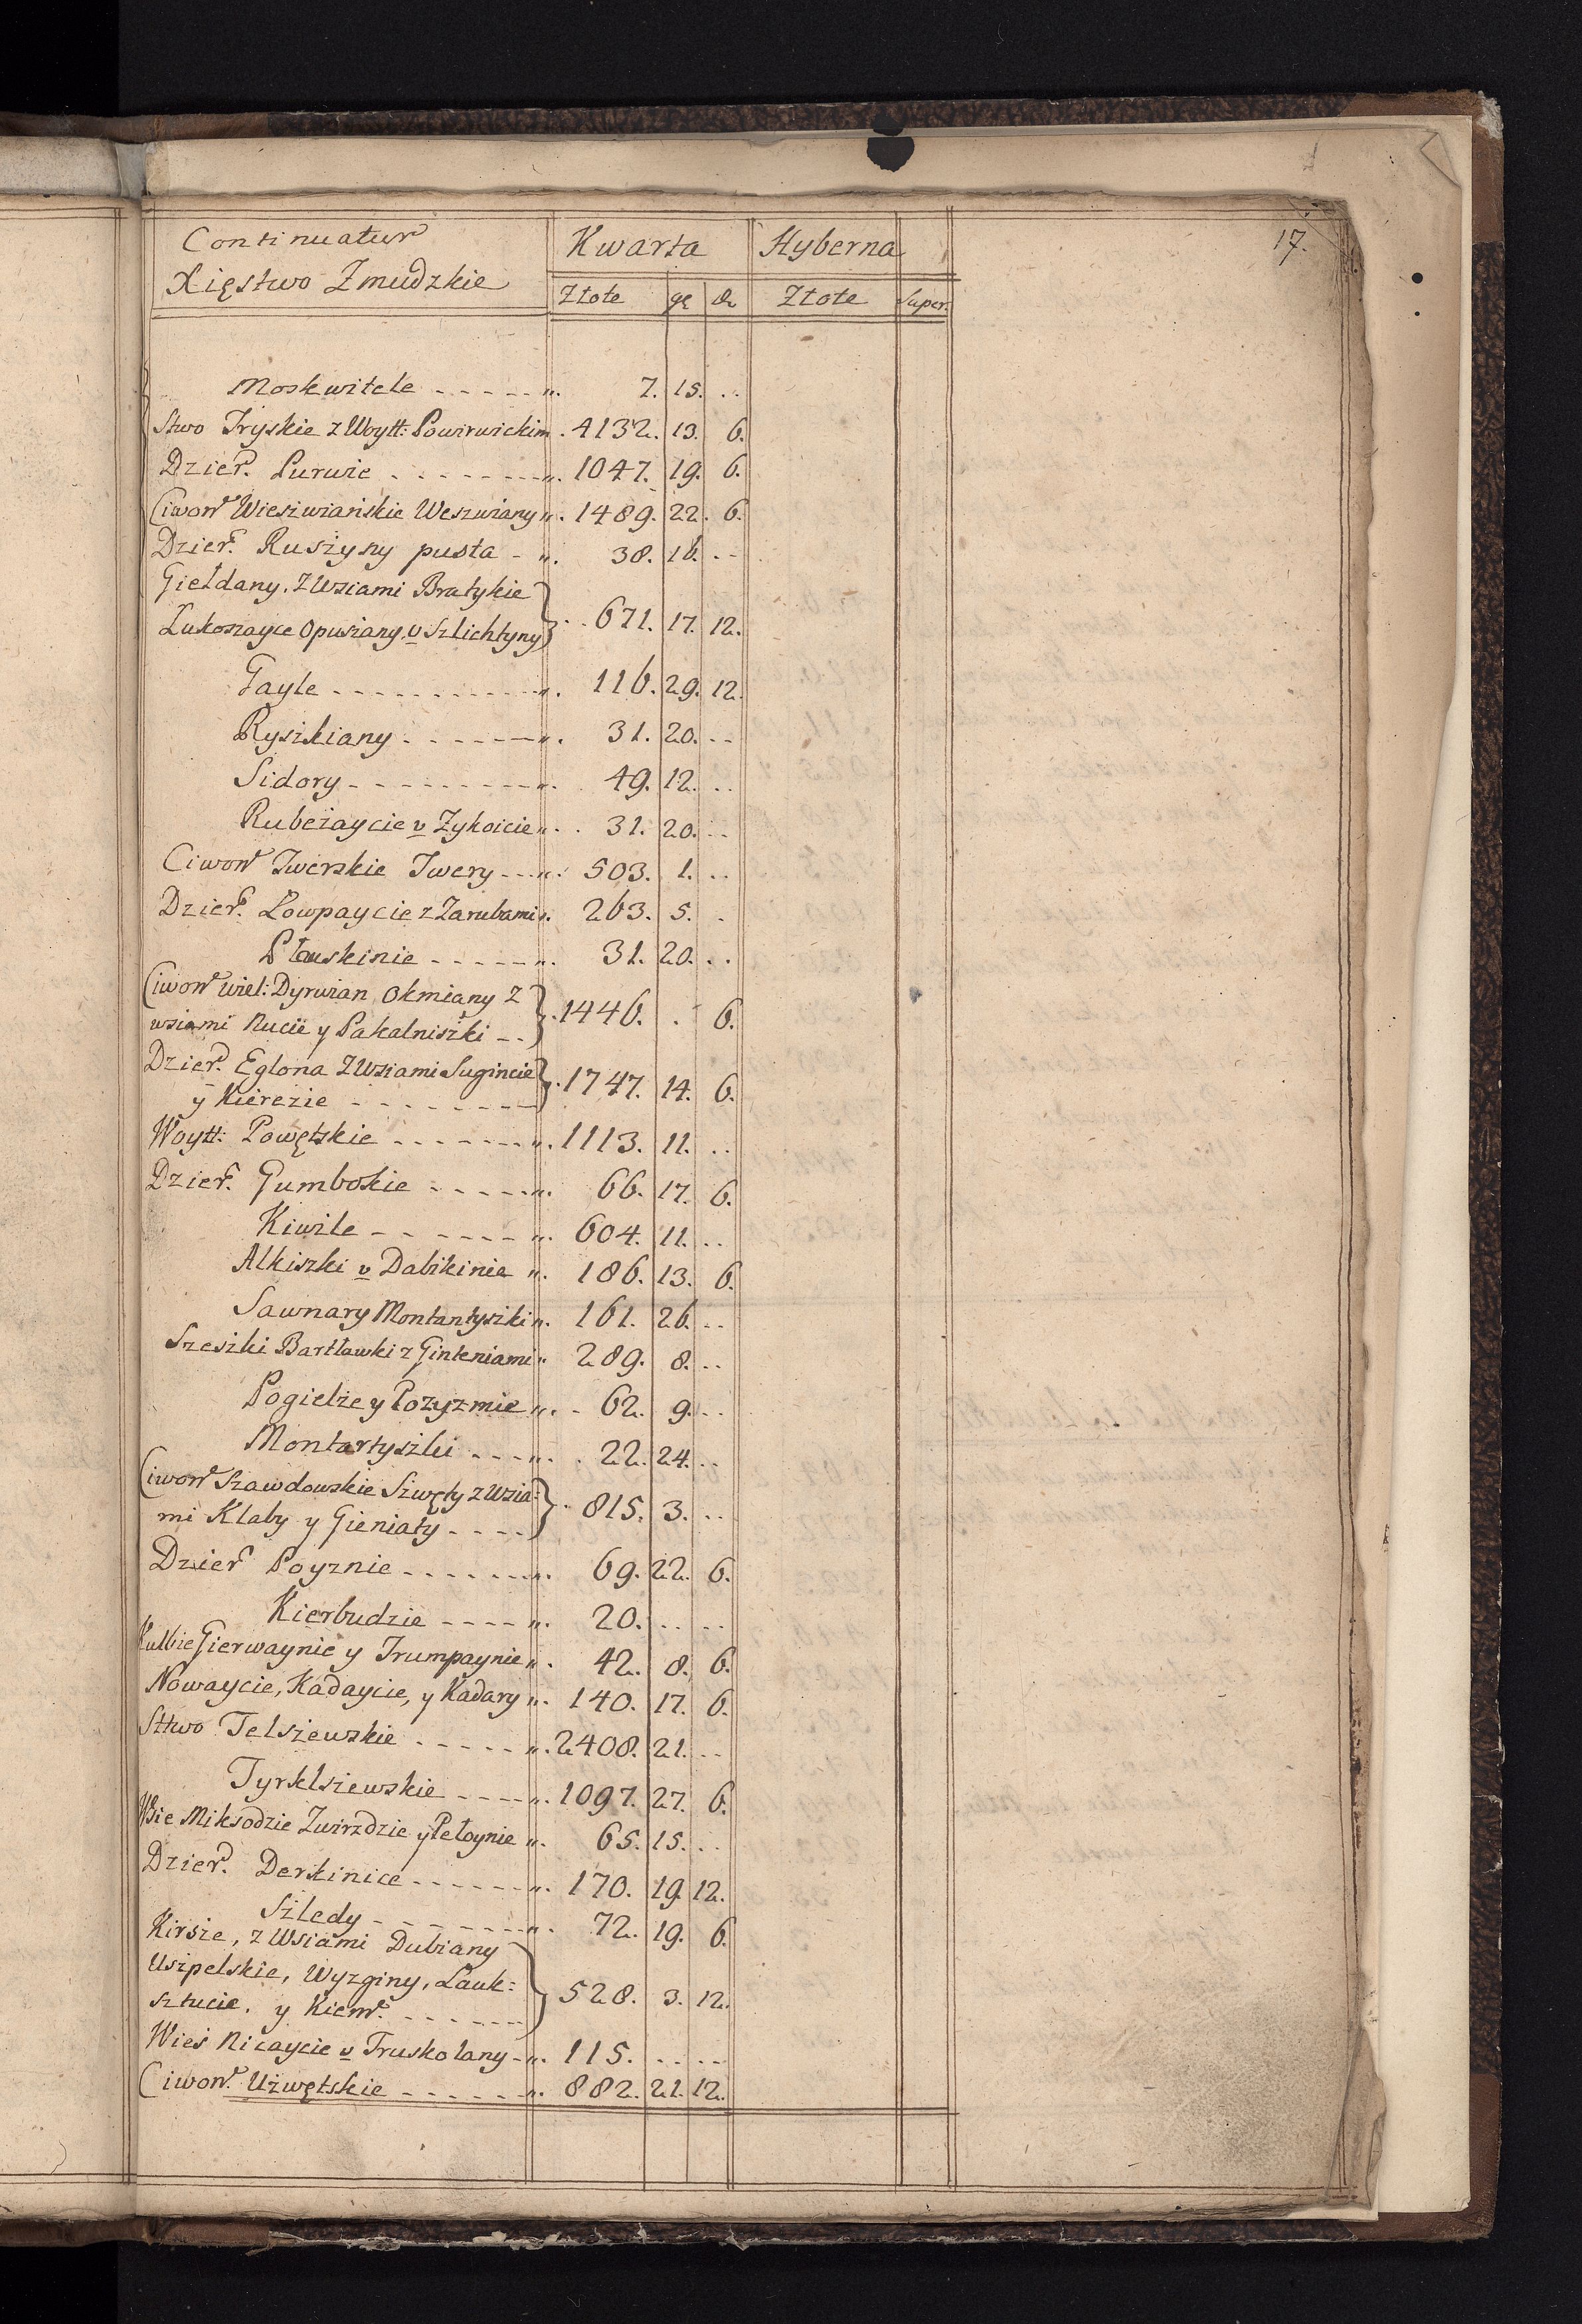 17.
Continuatur Kwarta Hyberna
Xięstwo Zmudzkie Złote gr d Złote Super.
Moskwitele - - - - - „. 7. 15. . .
Stwo Tryskie z Woytt: Powirwickim . 4132. 13. 6.
Dzier. Purwie . . . . . . . „. 1047. 19. 6.
Ciwon Wieszwiańskie Weszwiany „. 1489. 22. 6.
Dzier. Ruszyny pusta - „. 38. 16. . -
Giełdany. z Wsiami Bratykie
Łukoszayce Opusiany v Szlichtyny } . . 671. 17. 12.
Gayle - - - - - - - - „. 116. 29. 12.
Ryszkiany - - - - - „. 31. 20. - -
Sidory - - - - - - - - „. 49. 12. . .
Rubeżaycie v Zykoicie „. . 31. 20. - -
Ciwon Twerskie Twery - - - „. 503. 1. . .
Dzier. Łowpaycie z Zarubami „. 263. 5. .
Płauskinie - - - - - „. 31. 20. . .
Ciwon wiel: Dyrwian Okmiany z
wsiami Rucie y Pakalniszki - - } . 1446. . 6.
Dzier. Eglona z Wsiami Sugincie
y Kierezie - - - - - - - } . 1747. 14. 6.
Woytt: Powętskie - - - - - „. 1113. 11. . .
Dzier. Gumbokie - - - - „. 66. 17. 6.
Kiwile - - - - - - „. 604. 11. . .
Alkiszki v Dabikinie „. 186. 13. 6.
Sawnary Montantyszki „. 161. 26. - -
Szeszki Bartławki z Ginteniami „ 289. 8. - -
Pogielże y Pozyzmie „. - 62. 9. - -
Montartyszki - - - „. . 22. 24. . .
Ciwon Szawdowskie Szwęty z Wsia:
mi Klaby y Gieniaty - - - - } . 815. 3. . .
Dzier Poyznie - - - - - „. 69. 22. 6.
Kierbudzie - - - - „. 20. . . . .
Kulbie Gierwaynie y Trumpaynie „. 42. 8. 6.
Nowaycie, Kadaycie, y Kadary „. 140. 17. 6.
Sttwo Telszewskie - - - - - „. 2408. 21. - -
Tyrkszlewskie - - - - „. 1097. 27. 6.
Wsie Miksodzie Zwirzdzie y Pełoynie „. 65. 15. . .
Dzier. Derkinice - - - - - - „. 170. 19. 12.
Szledy - - - - - - - „. 72. 19. 6.
Kirsze, z Wsiami Dubiany
Uszpelskie, Wyzginy, Lauk:
sztucie, y Kiem. - - - - - - } 528. 3. 12.
Wieś Nicaycie v Truskolany - „. 115. . . - -
Ciwon. Użwętskie - - - - - - „. 882. 21. 12.